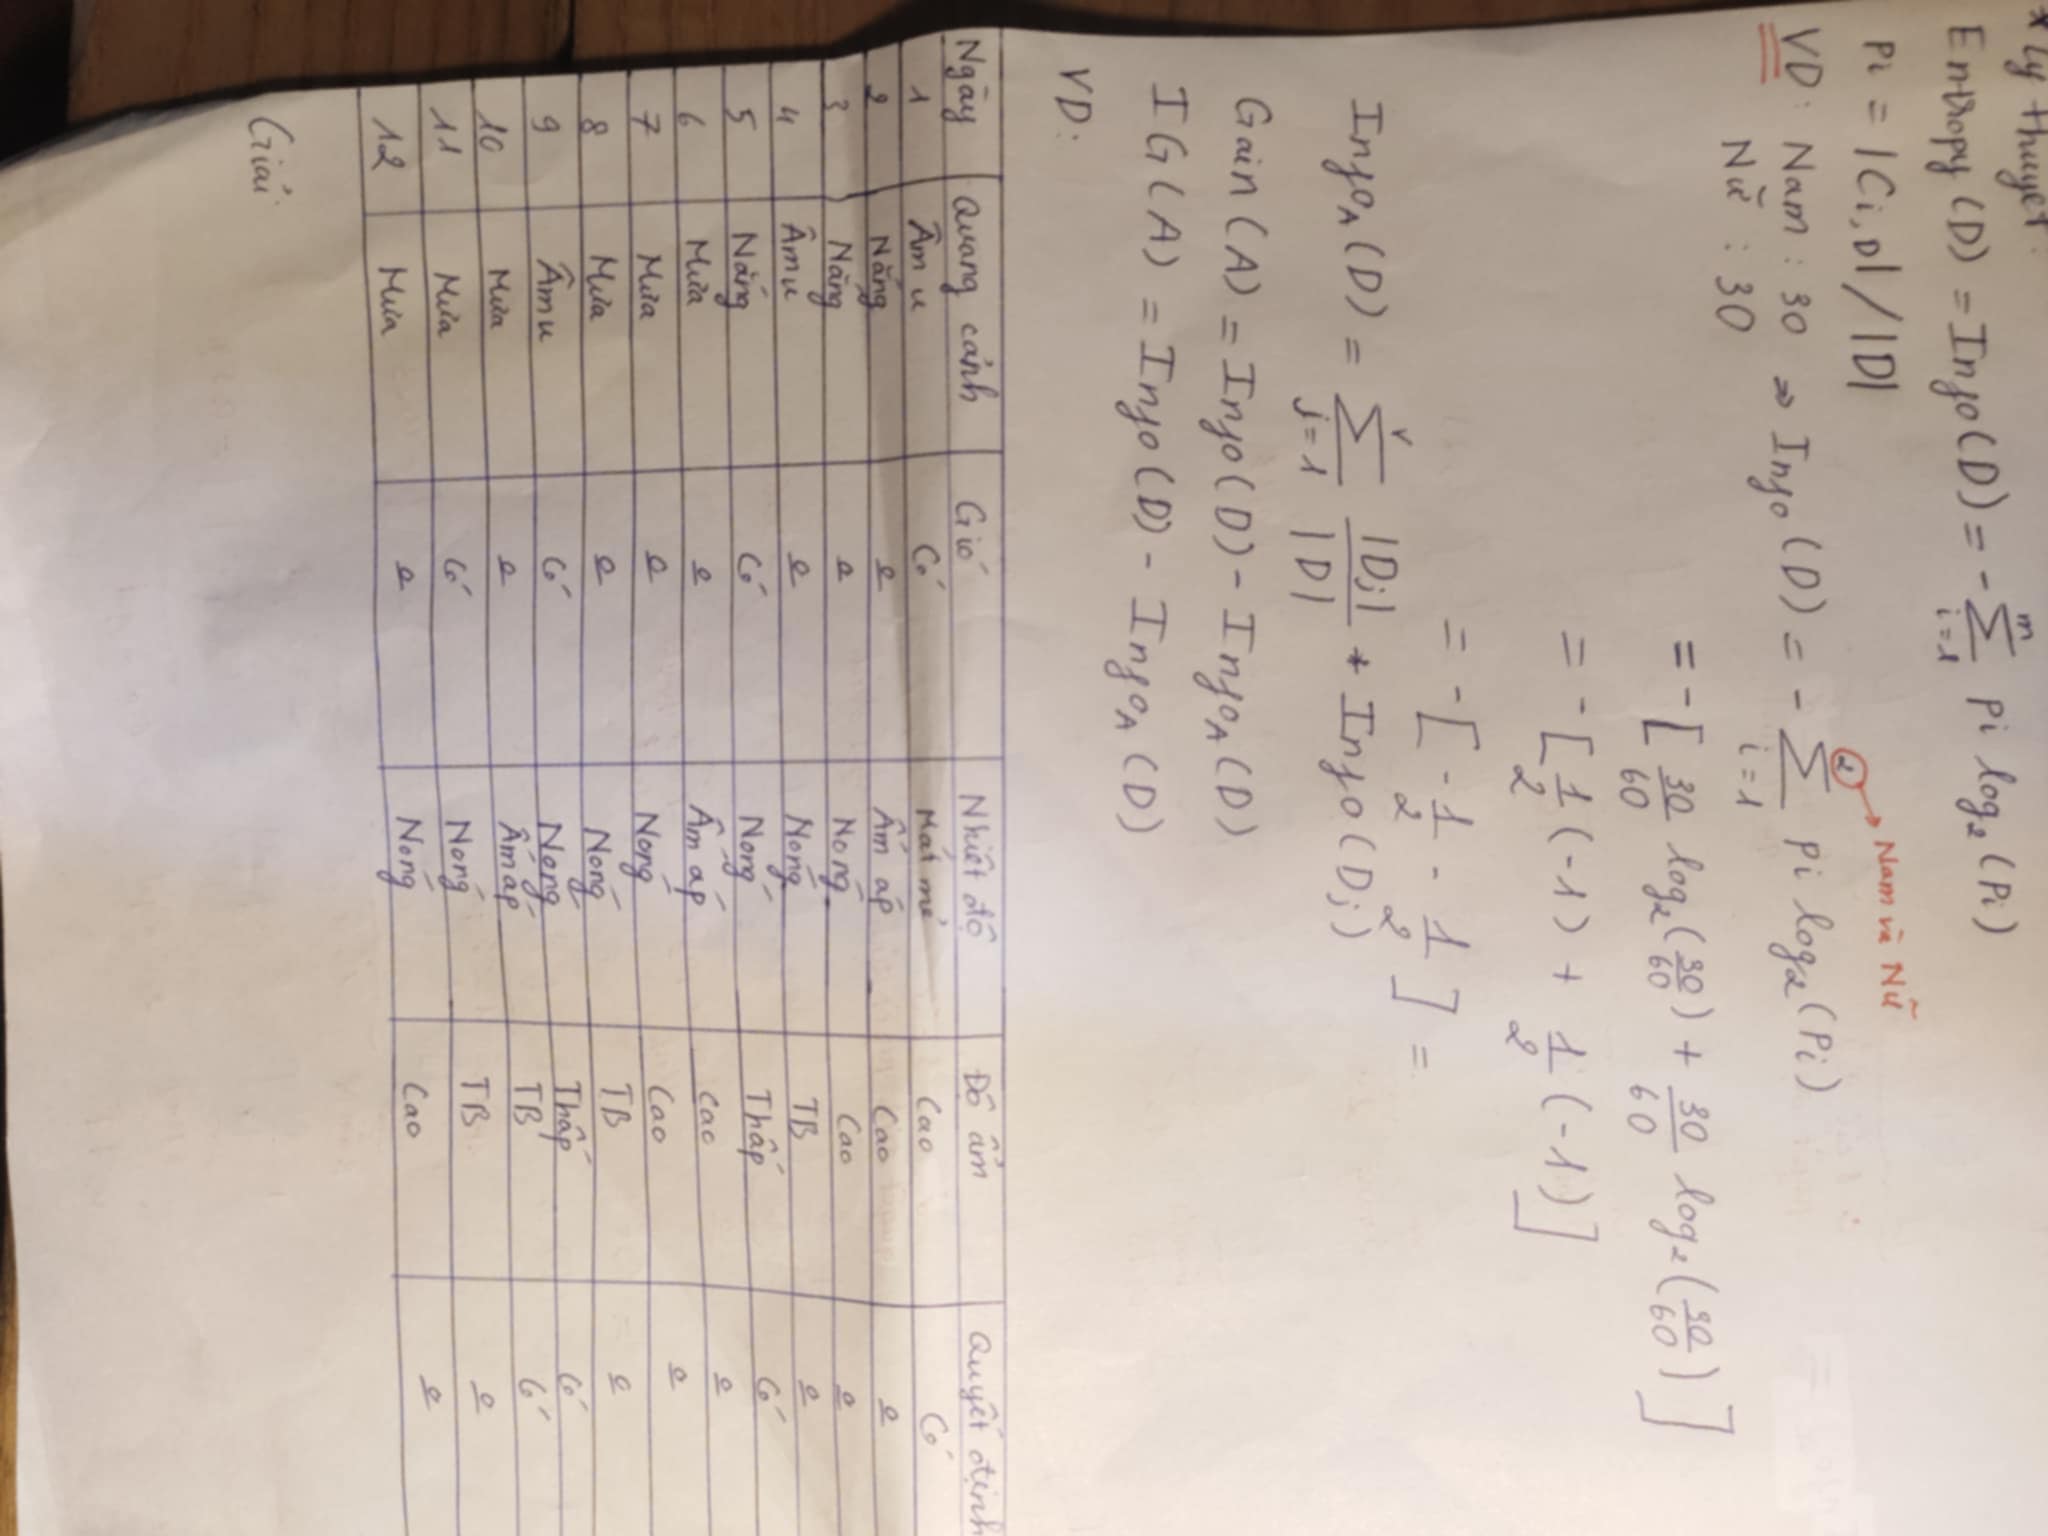 * Lý thuyết:
Entropy (D) = Info (D) = - m ∑ i=1 pi log2 (Pi)
Pi = |Ci,D| / |D|
Nam và Nữ
VD: Nam : 30 => Info (D) = - 2 ∑ i=1 pi log2 (Pi)
Nữ : 30
= - [ 30/60 log2 (30/60) + 30/60 log2 (30/60) ]
= - [ 1/2 (-1) + 1/2 (-1) ]
= - [ - 1/2 - 1/2 ] =
InfoA (D) = v ∑ j=1 |Dj| / |D| * Info (Dj)
Gain (A) = Info (D) - InfoA (D)
IG (A) = Info (D) - InfoA (D)
VD:
Ngày Quang cảnh Gió Nhiệt độ Độ ẩm Quyết định
1 Âm u Có Mát mẻ Cao Có
2 Nắng 0 Ấm áp Cao 0
3 Nắng 0 Nóng Cao 0
4 Âm u 0 Nóng TB 0
5 Nắng Có Nóng Thấp Có
6 Mưa 0 Ấm áp Cao 0
7 Mưa 0 Nóng Cao 0
8 Mưa 0 Nóng TB 0
9 Âm u Có Nóng Thấp Có
10 Mưa 0 Ấm áp TB Có
11 Mưa Có Nóng TB 0
12 Mưa 0 Nóng Cao 0
Giải